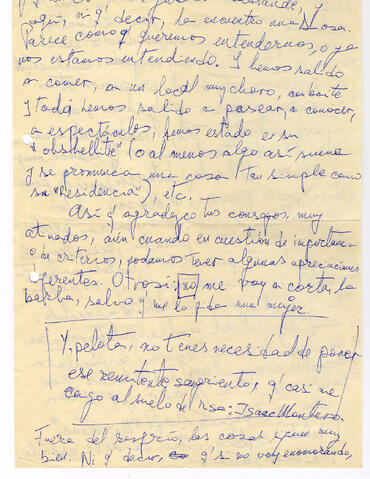 aquí, ni q' decir, la encuentro una Diosa.
Parece como q' queremos entendernos, o ya
nos estamos entendiendo. Y hemos salido
a comer, a un local muy choro, con bote
y todo hemos salido a pasear, a conocer,
a espectáculos, hemos estado en su
"obshellite" (o al menos algo así suena
y se pronuncia una cosa tan simple como
su "Residencia"), etc.
Así q' agradezco tus consejos, muy
atinados, aún cuando en cuestión de
o de criterios, podamos tener algunas apreciaciones
diferentes. Otrosí: no me voy a cortar la
barba, salvo q' me lo pida una mujer.
Y, pelota, no tenes necesidad de poner
ese remitente sangriento, q' casi me
caigo al suelo de risa: Isaac Montero.
Fuera del resfrío, las cosas siguen muy
bien. Ni q' decir, q' si no voy enamorando,